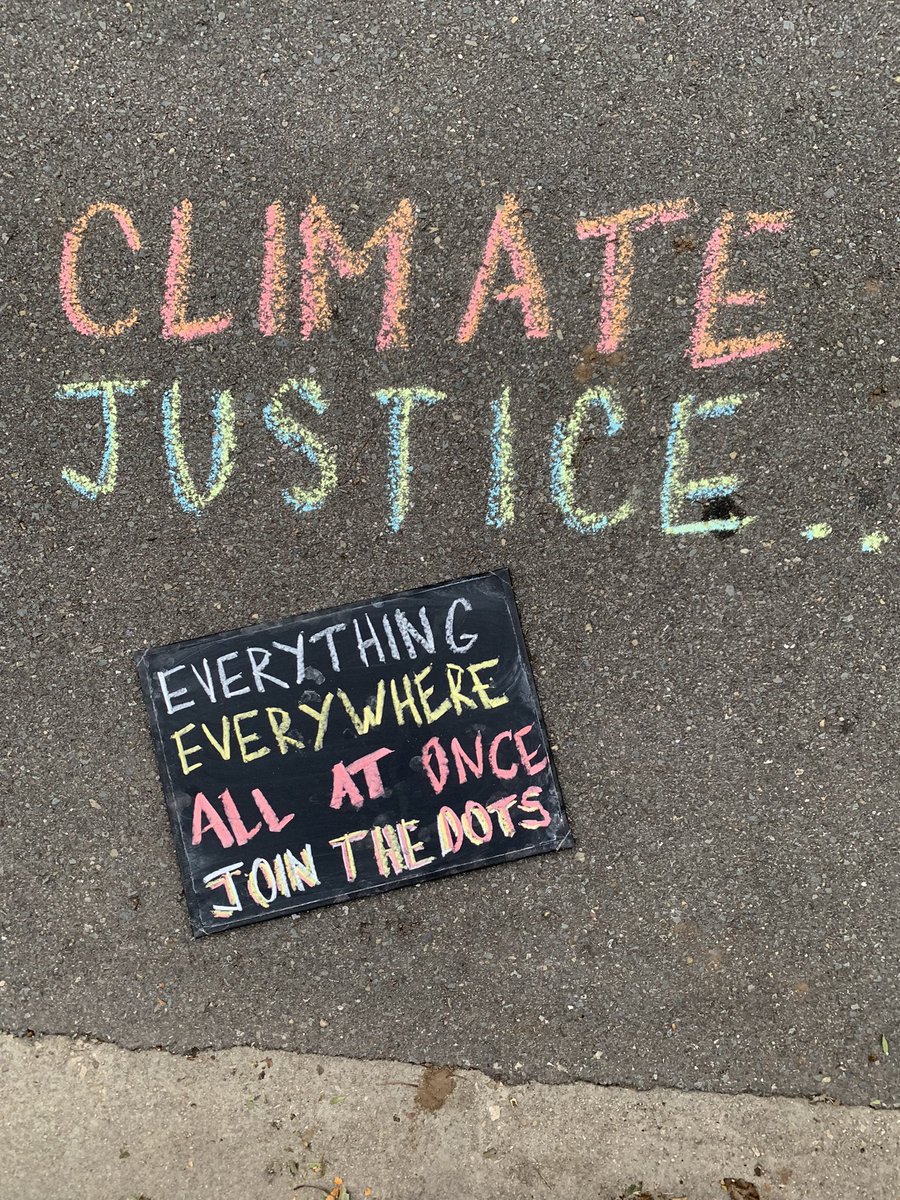 CLIMATE
JUSTICE..
EVERYTHING
EVERYWHERE
ALL AT ONCE
JOIN THE DOTS